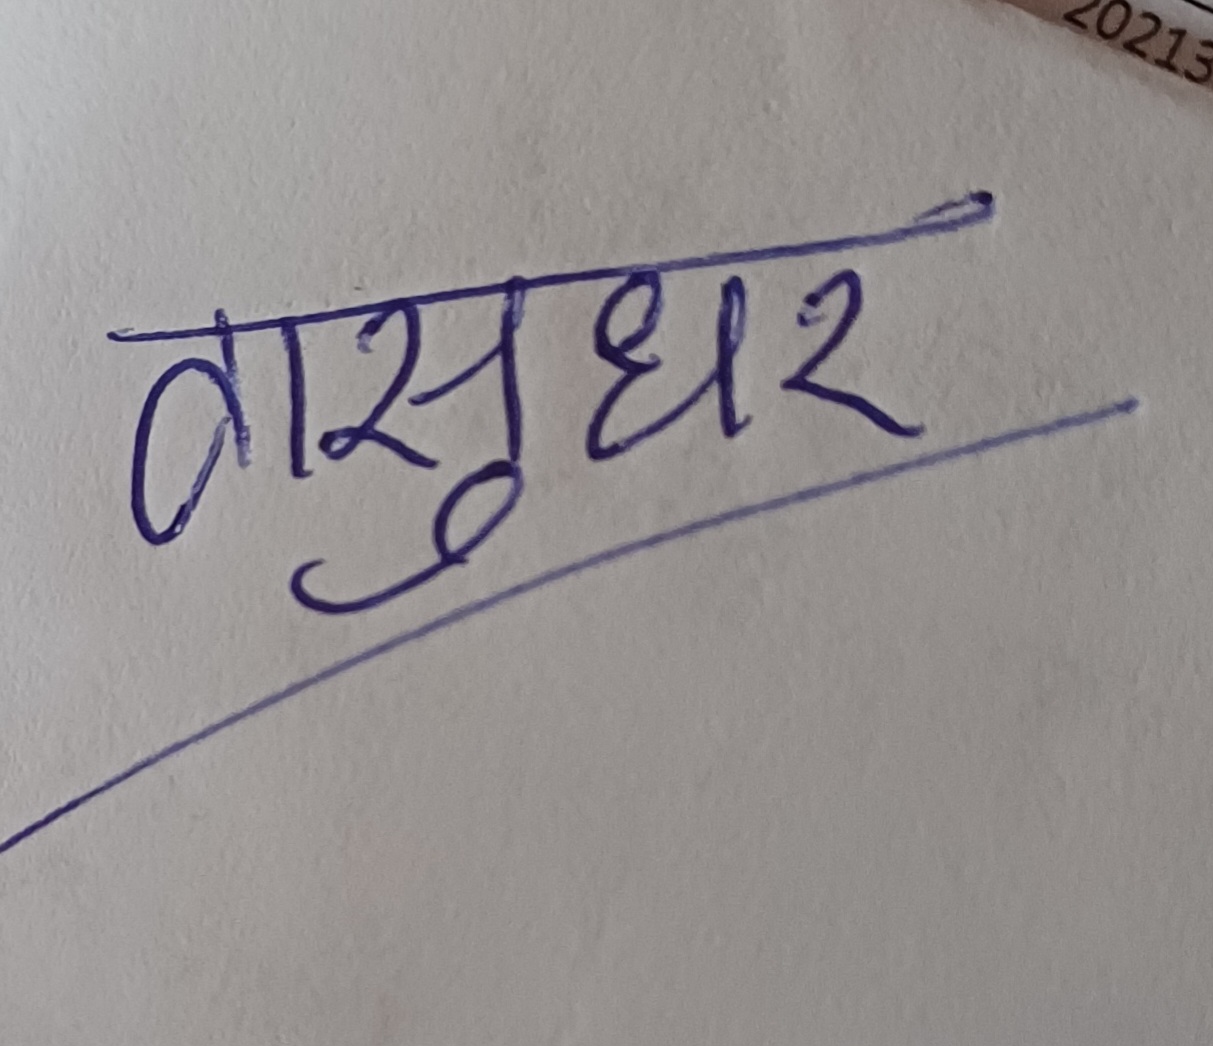 20213
वासुधर